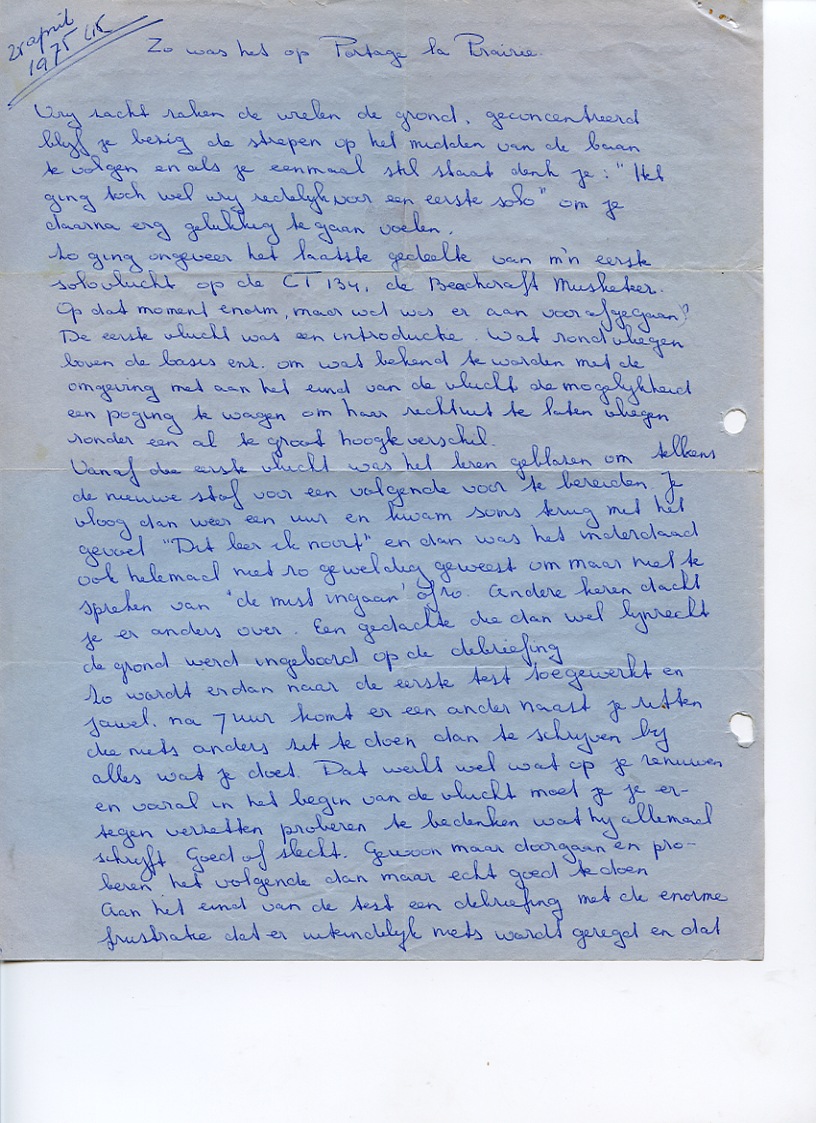 21 april
1975
Zo was het op Portage la Prairie.
Vrij zacht raken de wielen de grond, geconcentreerd
blijf je bezig de strepen op het midden van de baan
te volgen en als je eenmaal stil staat denk je: "Het
ging toch wel vrij redelijk voor een eerste solo" om je
daarna erg gelukkig te gaan voelen.
Zo ging ongeveer het laatste gedeelte van m'n eerste
solovlucht op de CT 134, de Beachcraft Musketeer.
Op dat moment enorm, maar wat was er aan vooraf gegaan?
De eerste vlucht was een introductie. Wat rond vliegen
boven de basis enz. om wat bekend te worden met de
omgeving met aan het eind van de vlucht de mogelijkheid
een poging te wagen om haar rechtuit te laten vliegen
zonder een al te groot hoogteverschil.
Vanaf die eerste vlucht was het leren geblazen om telkens
de nieuwe stof voor een volgende voor te bereiden. Je
vloog dan weer een uur en kwam soms terug met het
gevoel "Dit leer ik nooit" en dan was het inderdaad
ook helemaal niet zo geweldig geweest om maar niet te
spreken van 'de mist ingaan' ofzo. Andere keren dacht
je er anders over. Een gedachte die dan wel lijnrecht
de grond werd ingeboord op de debriefing
Zo wordt er dan naar de eerste test toegewerkt en
jawel. na 7 uur komt er een ander naast je zitten
die niets anders zit te doen dan te schrijven bij
alles wat je doet. Dat werkt wel wat op je zenuwen
en vooral in het begin van de vlucht moet je je er-
tegen verzetten proberen te bedenken wat hij allemaal
schrijft Goed of slecht. Gewoon maar doorgaan en pro-
beren het volgende dan maar echt goed te doen
Aan het eind van de test een debriefing met de enorme
frustratie dat er uiteindelijk niets wordt gezegd en dat